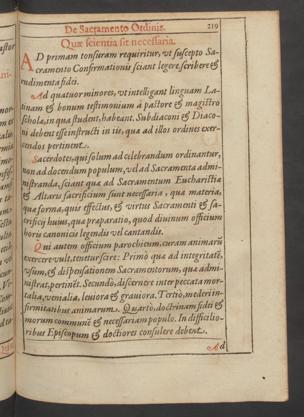 De Sacramento Ordinis. 219
Quæ scientia sit necessaria.
AD primam tonsuram requiritur, vt suscepto Sa-
cramento Confirmationis sciant legere, scribere &
rudimenta fidei.
Ad quatuor minores, vt intelligant linguam La-
tinam & bonum testimonium à pastore & magistro
scholæ, in qua student, habeant. Subdiaconi & Diaco-
ni debent esse instructi in iis, quæ ad illos ordines exer-
cendos pertinent.
Sacerdotes, qui solum ad celebrandum ordinantur,
non ad docendum populum, vel ad Sacramenta admi-
nistranda, sciant quæ ad Sacramentum Eucharistiæ
& Altaris sacrificium sunt necessaria, quæ materia,
quæ forma, quis effectus, & virtus Sacramenti & sa-
crificij huius, quæ præparatio, quod diuinum officium
horis canonicis legendis vel cantandis.
Qui autem officium parochicum, curam animarũ
exercere vult, tenetur scire: Primò quæ ad integritatẽ,
vsum, & dispensationem Sacramentorum, quæ admi-
nistrat, pertinẽt. Secundò, discernere inter peccata mor-
talia, venialia, leuiora & grauiora. Tertiò, mederi in-
firmitatibus animarum. Quartò, doctrinam fidei &
morum communẽ & necessariam populo. In difficilio-
ribus Episcopum & doctiores consulere debent.
Ad